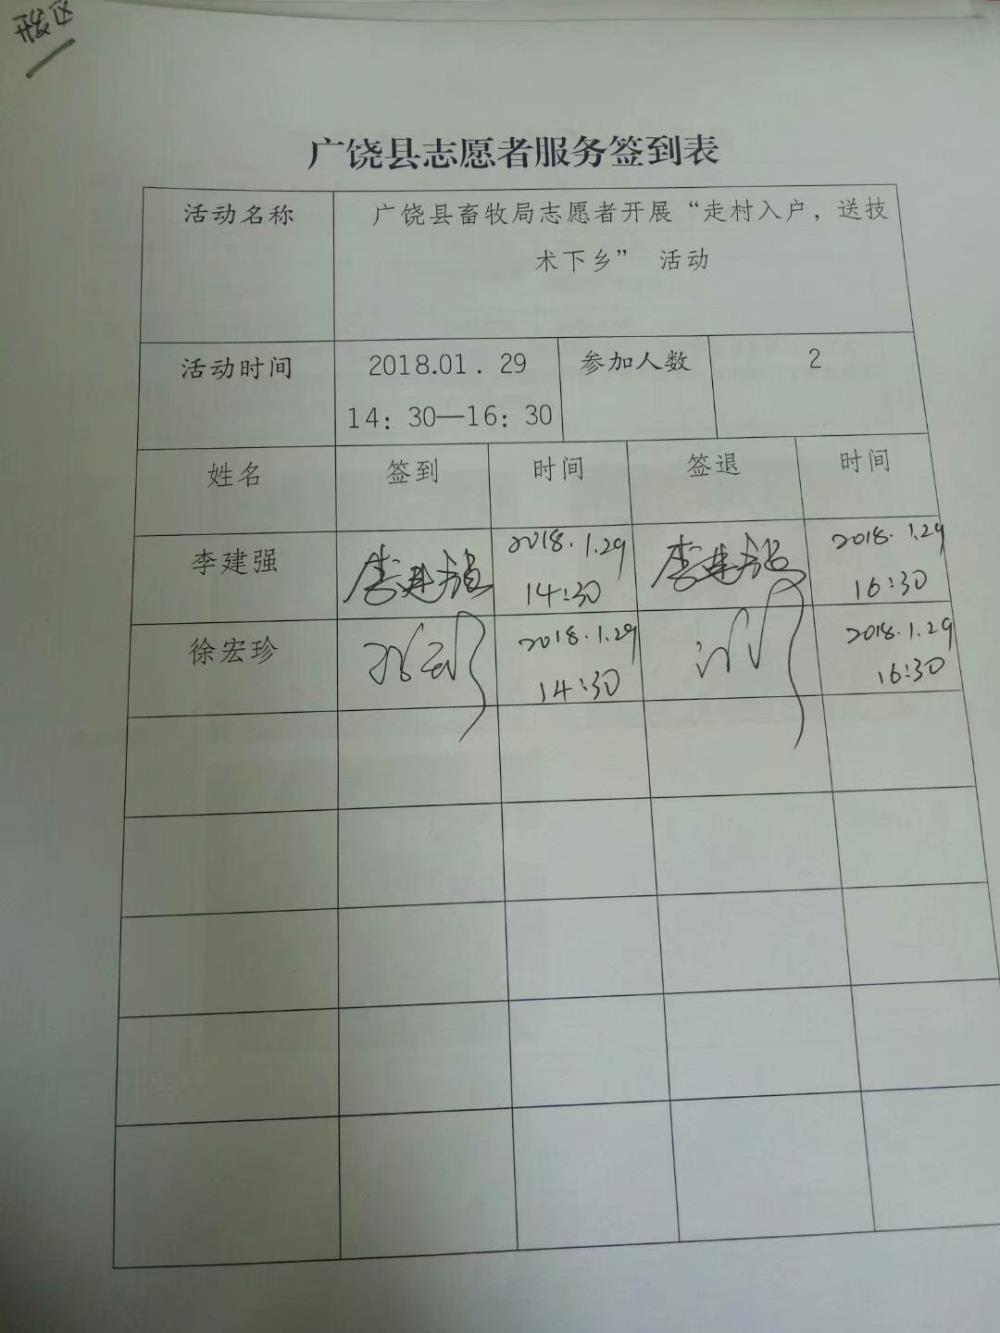 开发区
广饶县志愿者服务签到表
活动名称
广饶县畜牧局志愿者开展“走村入户，送技
术下乡” 活动
活动时间
2018.01.29
14：30—16：30
参加人数
2
姓名 签到 时间 签退 时间
李建强 李建强 2018.1.29 李建强 2018.1.29
14:30 16:30
徐宏珍 2018.1.29 2018.1.29
14:30 16:30